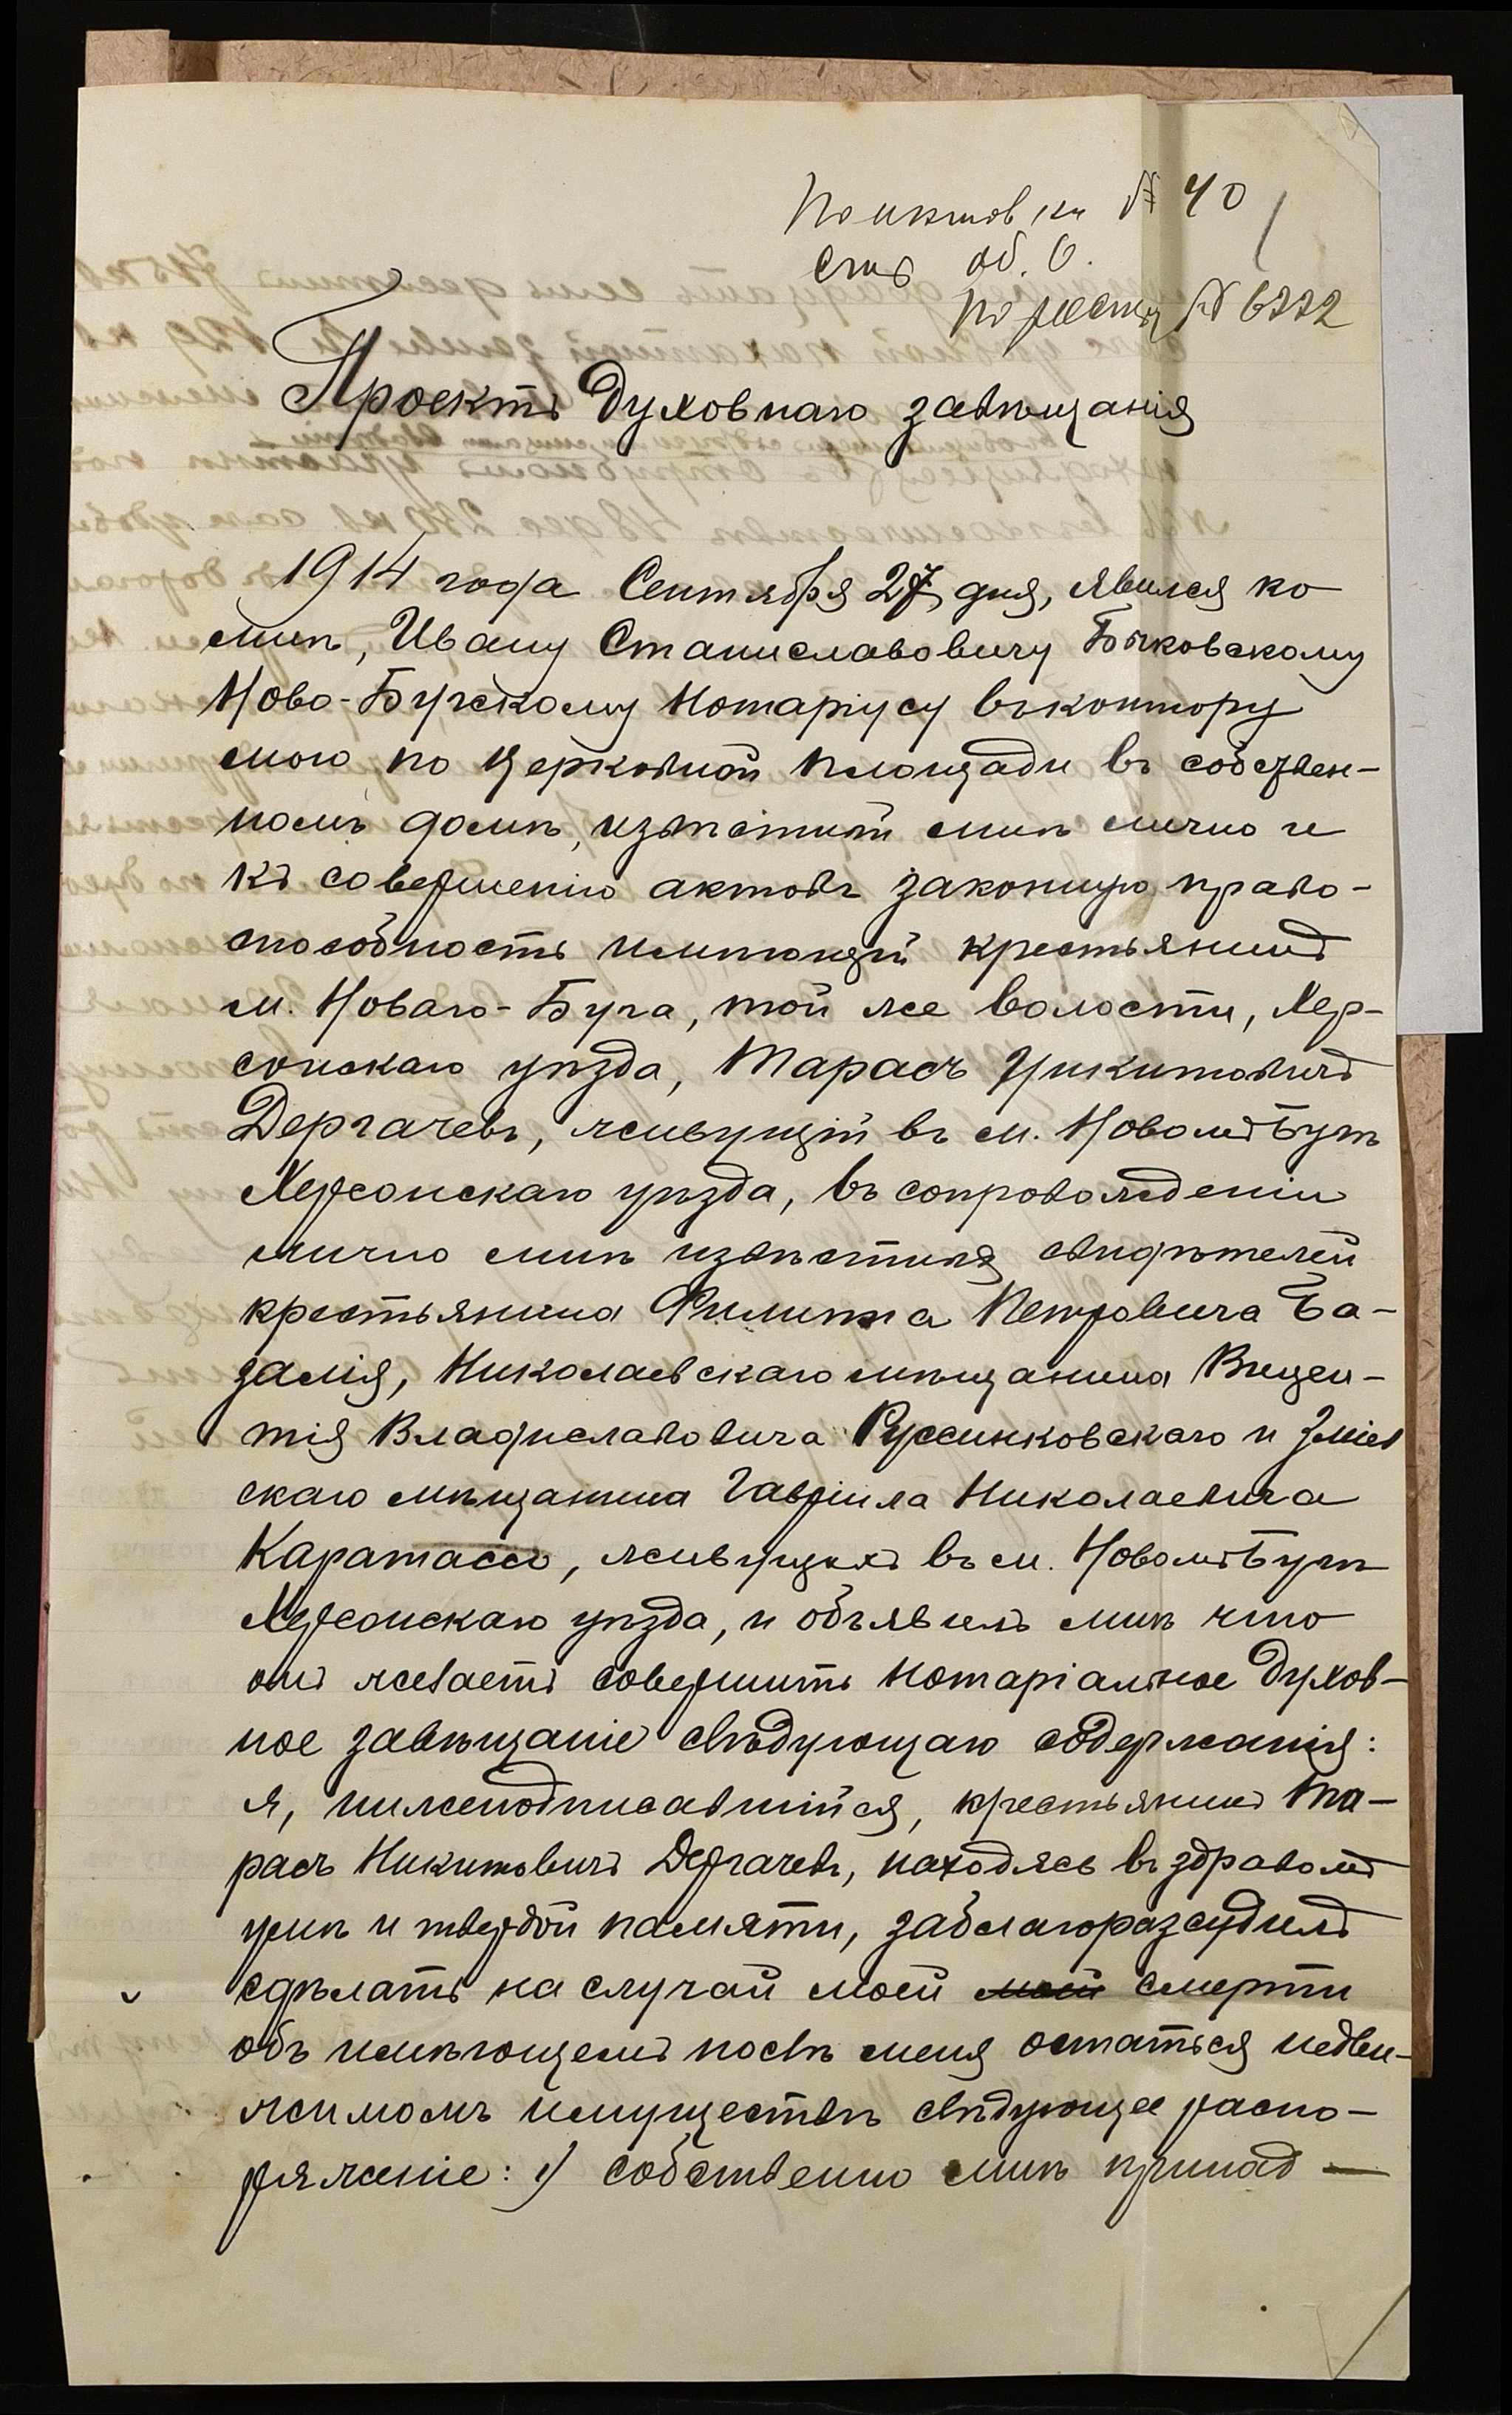 По актов кн № 40
стр об. 6.
по реестру № 6772
Проектъ Духовнаго завѣщанія
1914 года Сентября 27 дня, явился ко
мнѣ, Ивану Станиславовичу Бычковскому
Ново-Бугскому Нотаріусу въ контору
мою по Церковной площади въ собствен-
номъ домѣ, извѣстный мнѣ лично и
къ совершенію актовъ законную право-
способность имѣющій крестьянинъ
м. Новаго-Буга, той же волости, Хер-
сонскаго уѣзда, Тарасъ Никитовичъ
Дергачевъ, живущій въ м. Новомъ Бугѣ
Херсонскаго уѣзда, въ сопровожденіи
лично мнѣ извѣстныхъ свидѣтелей
крестьянина Филиппа Петровича Ба-
залія, Николаевскаго мѣщанина Викен-
тія Владиславовича Руссинковскаго и Зміев
скаго мѣщанина Гавріила Николаевича
Каратасо, живущихъ въ м. Новомъ Бугѣ
Херсонскаго уѣзда, и объявилъ мнѣ что
онъ желаетъ совершить нотаріальное духов-
ное завѣщаніе слѣдующаго содержанія:
я, нижеподписавшійся, крестьянинъ Та-
расъ Никитовичъ Дергачевъ, находясь въ здравомъ
умѣ и твердой памяти, заблагоразсудилъ
сдѣлать на случай моей моей смерти
объ имѣющемъ послѣ меня остаться недви-
жимомъ имуществѣ слѣдующее распо-
ряженіе: 1) собственно мнѣ принад-